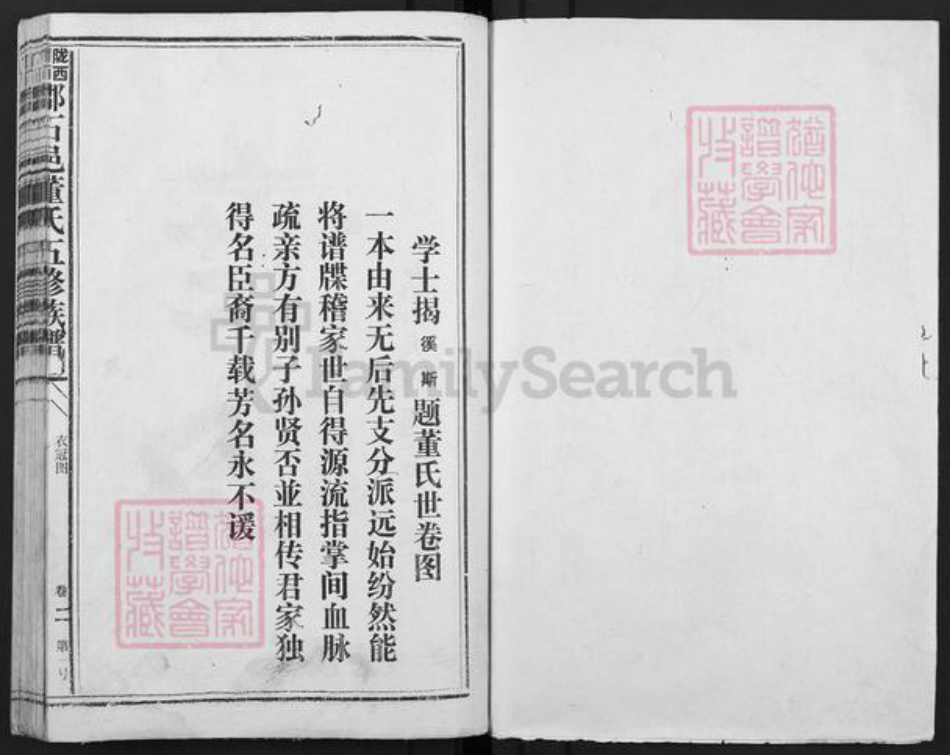 学士揭徯斯题董氏世卷图
一本由来无后先支分派远始纷然能
将谱牒稽家世自得源流指掌间血脉
疏亲方有别子孙贤否並相传君家独
得名臣裔千载芳名永不谖
陇西
董氏五修族譜
衣冠图
卷二
第一号
FamilySearch
猶他家
譜學會
收藏
猶他家
譜學會
收藏